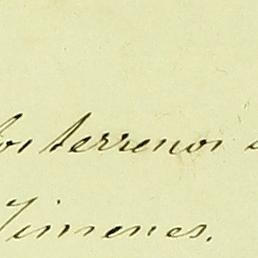 los terrenos
Jimenes.